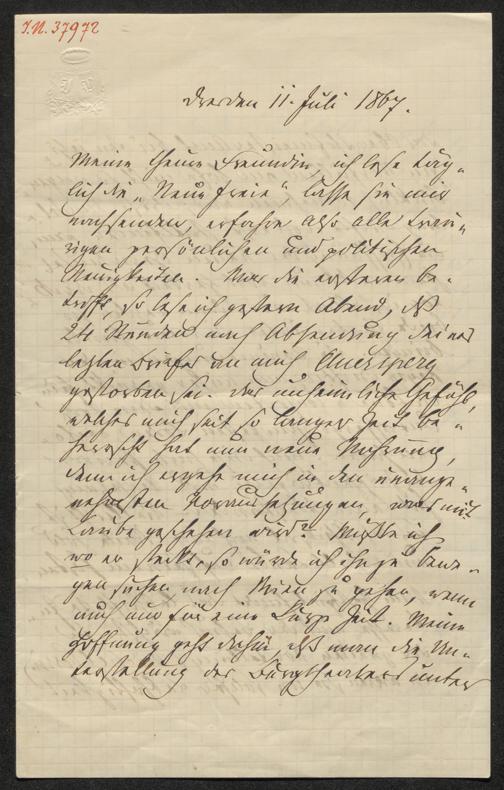 I.N. 37972
Dresden 11. Juli 1867.
Meine theure Freundin, ich lese täg-
lich die „Neue freie", lasse sie mir
nachsenden, erfahre also alle trau-
rigen persönlichen und politischen
Neuigkeiten. Was die ersteren be-
trifft, so lese ich gestern Abend, daß
24 Stunden nach Absendung deines
letzten Briefes an mich Auersperg
gestorben sei. Das unheimliche Gefühl,
welches mich seit so langer Zeit be-
herrscht hat nun neue Nahrung,
denn ich ergehe mich in den unange-
nehmsten Voraussetzungen, was mit
Laube geschehen wird? Wüßte ich
wo er steckt, so würde ich ihn zu bewe-
gen suchen nach Wien zu gehen, wenn
auch nur für eine kurze Zeit. Meine
Hoffnung geht dahin, daß man die Un-
terstellung des Burgtheaters unter